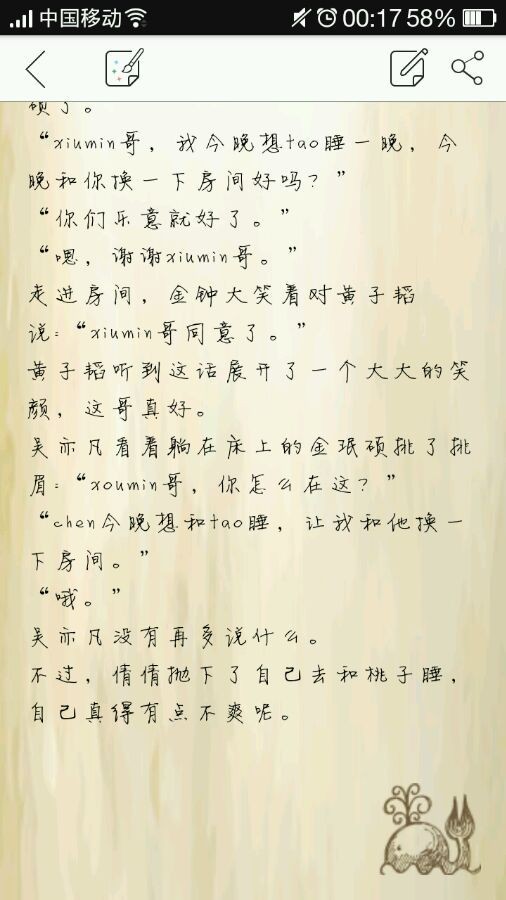 中国移动 00:17 58%
硕了。
“xiumin哥，我今晚想tao睡一晚，今
晚和你换一下房间好吗？”
“你们乐意就好了。”
“嗯，谢谢xiumin哥。”
走进房间，金钟大笑着对黄子韬
说：“xiumin哥同意了。”
黄子韬听到这话展开了一个大大的笑
颜，这哥真好。
吴亦凡看着躺在床上的金珉硕挑了挑
眉：“xoumin哥，你怎么在这？”
“chen今晚想和tao睡，让我和他换一
下房间。”
“哦。”
吴亦凡没有再多说什么。
不过，倩倩抛下了自己去和桃子睡，
自己真得有点不爽呢。